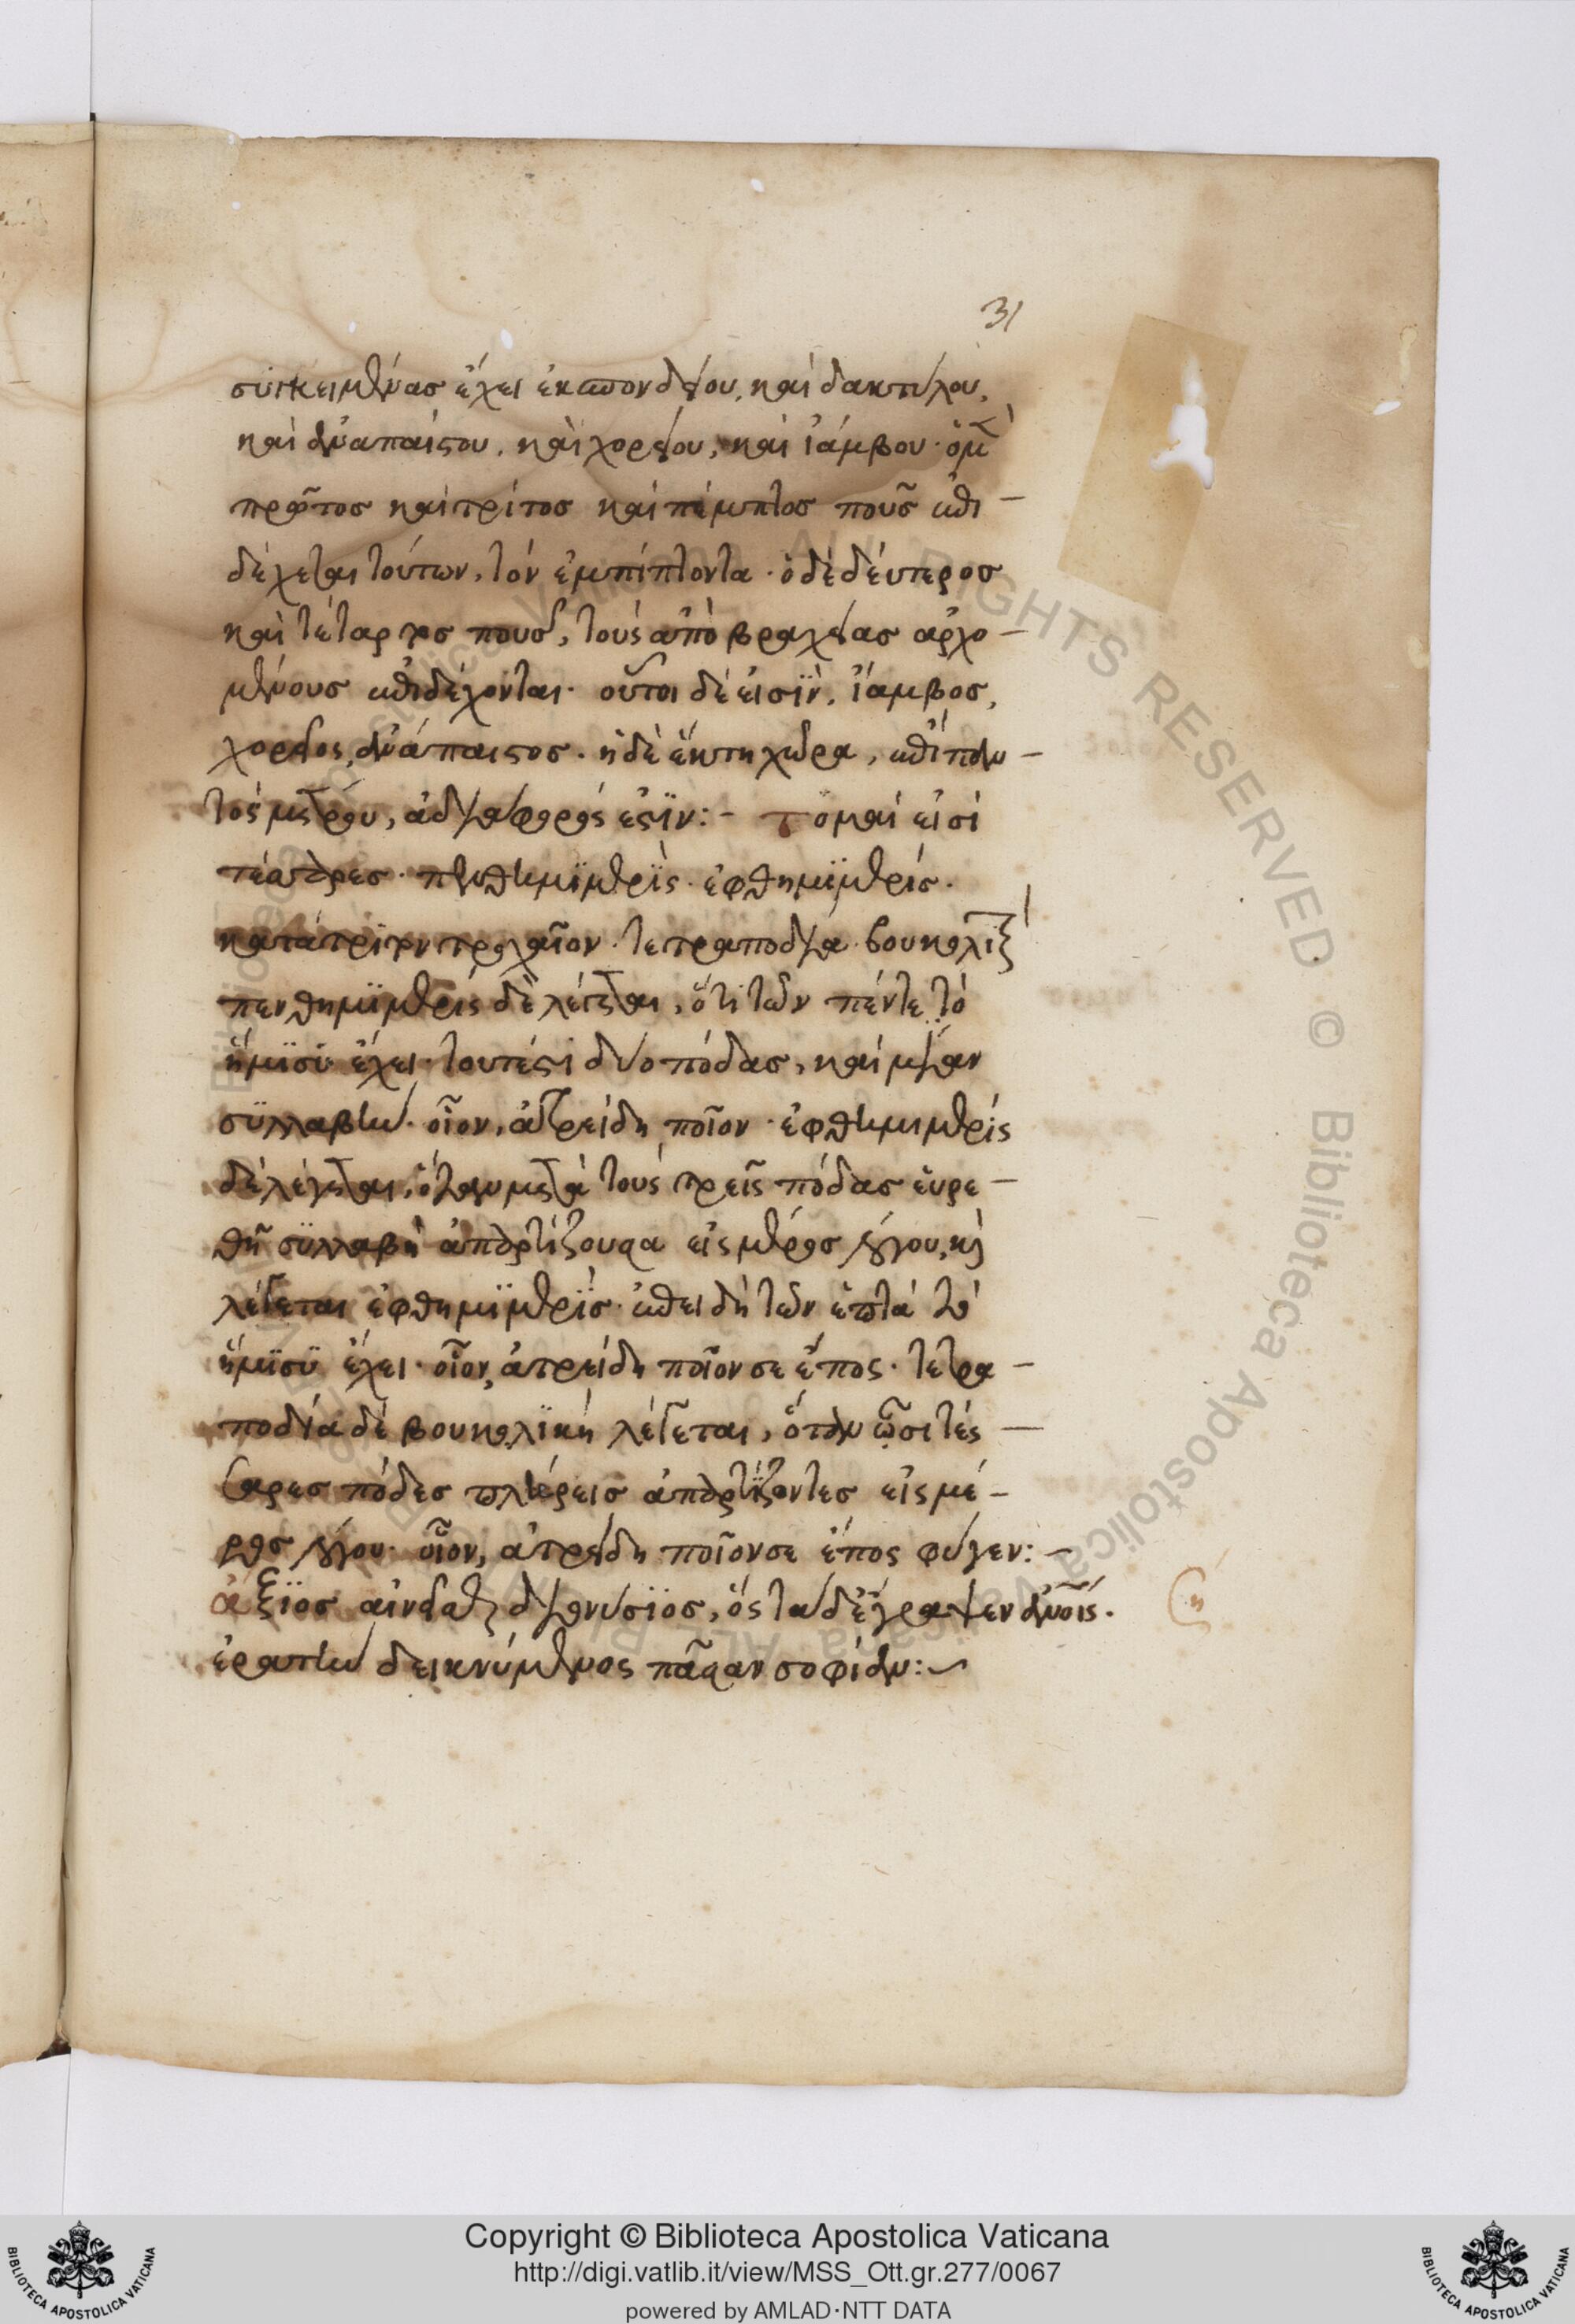 31
συγκειμένας ἔχει ἐκ σπονδείου, καὶ δακτύλου,
καὶ ἀναπαίστου, καὶ χορείου, καὶ ἰάμβου· ὁ μὲν
πρῶτος καὶ τρίτος καὶ πέμπτος ποῦς ἐπι-
δέχεται τούτων, τὸν ἐμπίπτοντα· ὁ δὲ δεύτερος
καὶ τέταρτος ποὺς, τοὺς ἀπὸ βραχείας ἀρχο-
μένους ἐπιδέχονται· οὗτοι δέ εἰσϊν, ἴαμβος,
χορεῖος, ἀνάπαιστος· ἡ δὲ ἕκτη χώρα, ἐπὶ παν-
τὸς μέτρου, ἀδιάφορός ἐστϊν:- Τομαί εἰσὶ
τέσσαρες· πενθημϊμερϊς· ἐφθημϊμερίς·
κατὰ τρίτον τροχαῖον· τετραποδία βουκολικ
πενθημϊμερὶς δὲ λέγεται, ὅτι τῶν πέντε τὸ
ἥμϊσυ ἔχει· τουτέστι δύο πόδας, καὶ μίαν
σϋλλαβὴν· οἷον, ἀτρείδη ποῖον· ἐφθημιμερὶς
δὲ λέγεται, ὅταν μετὰ τοὺς τρεῖς πόδας εὑρε-
θῆ σϋλλαβὴ ἀπαρτίζουσα εἰς μέρος λόγου, κὶ
λέγεται ἐφθημϊμερϊς· ἐπειδὴ τῶν ἑπτὰ τὸ
ἥμϊσϋ ἔχει· οἷον, ἀτρείδη ποῖον σε ἔπος· τετρα-
ποδία δὲ βουκολϊκὴ λέγεται, ὅταν ὦσι τές-
σαρες πόδες πλήρεις ἀπαρτϊζοντες εἰς μέ-
ρος λόγου· οἷον, ἀτρείδη ποῖον σε ἔπος φύγεν:-
ἄξϊος αἰνεῖσθαι διονυσϊος, ὃς τάδ' ἔγραψεν
ἐρατὴν δεικνύμενος πᾶσαν σοφίαν:~
Copyright © Biblioteca Apostolica Vaticana
http://digi.vatlib.it/view/MSS_Ott.gr.277/0067
powered by AMLAD·NTT DATA
BIBLIOTECA APOSTOLICA VATICANA
BIBLIOTECA APOSTOLICA VATICANA